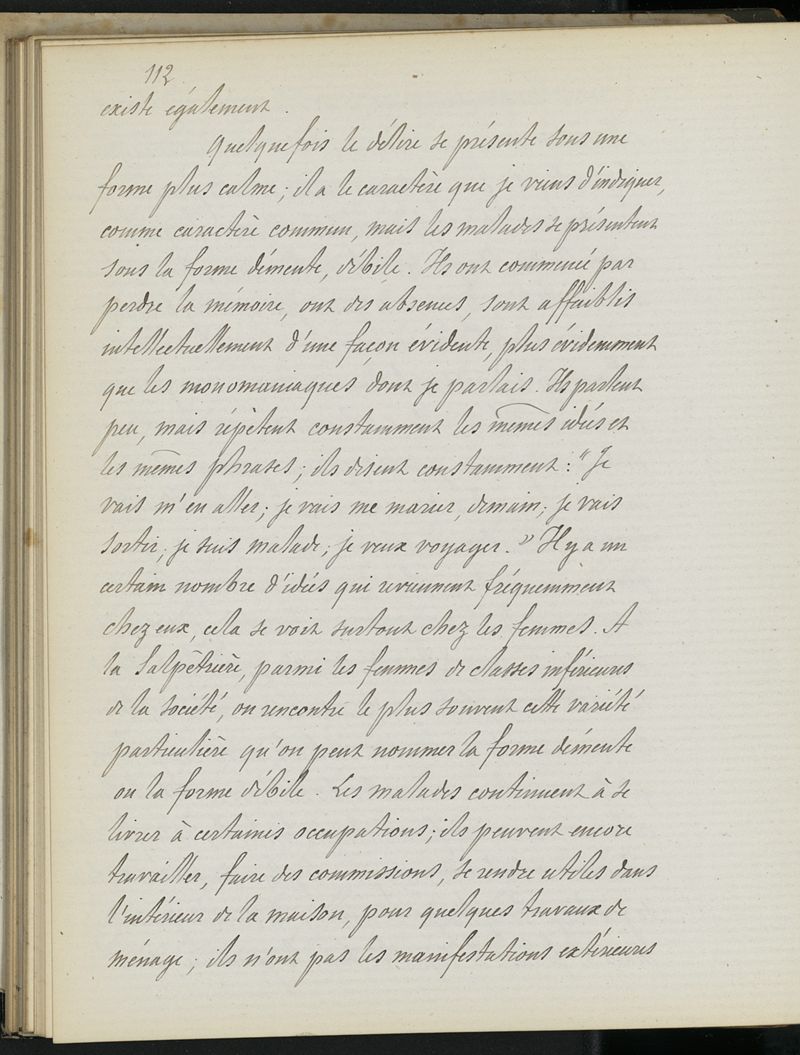 112
existe également.
Quelquefois le délire se présente sous une
forme plus calme; il a le caractère que je viens d'indiquer,
comme caractère commun, mais les malades se présentent
sous la forme démente, débile. Ils ont commencé par
perdre la mémoire, ont des absences, sont affaiblis
intellectuellement d'une façon évidente, plus évidemment
que les monomaniaques dont je parlais. Ils parlent
peu, mais répètent constamment les mêmes idées et
les mêmes phrases; ils disent constamment: "Je
vais m'en aller; je vais me marier, demain; je vais
sortir; je suis malade; je veux voyager." Il y a un
certain nombre d'idées qui reviennent fréquemment
chez eux, cela se voit surtout chez les femmes. A
la Salpêtrière, parmi les femmes de classes inférieures
de la société, on rencontre le plus souvent cette variété
particulière qu'on peut nommer la forme démente
ou la forme débile. Les malades continuent à se
livrer à certaines occupations; ils peuvent encore
travailler, faire des commissions, se rendre utiles dans
l'intérieur de la maison, pour quelques travaux de
ménage; ils n'ont pas les manifestations extérieures